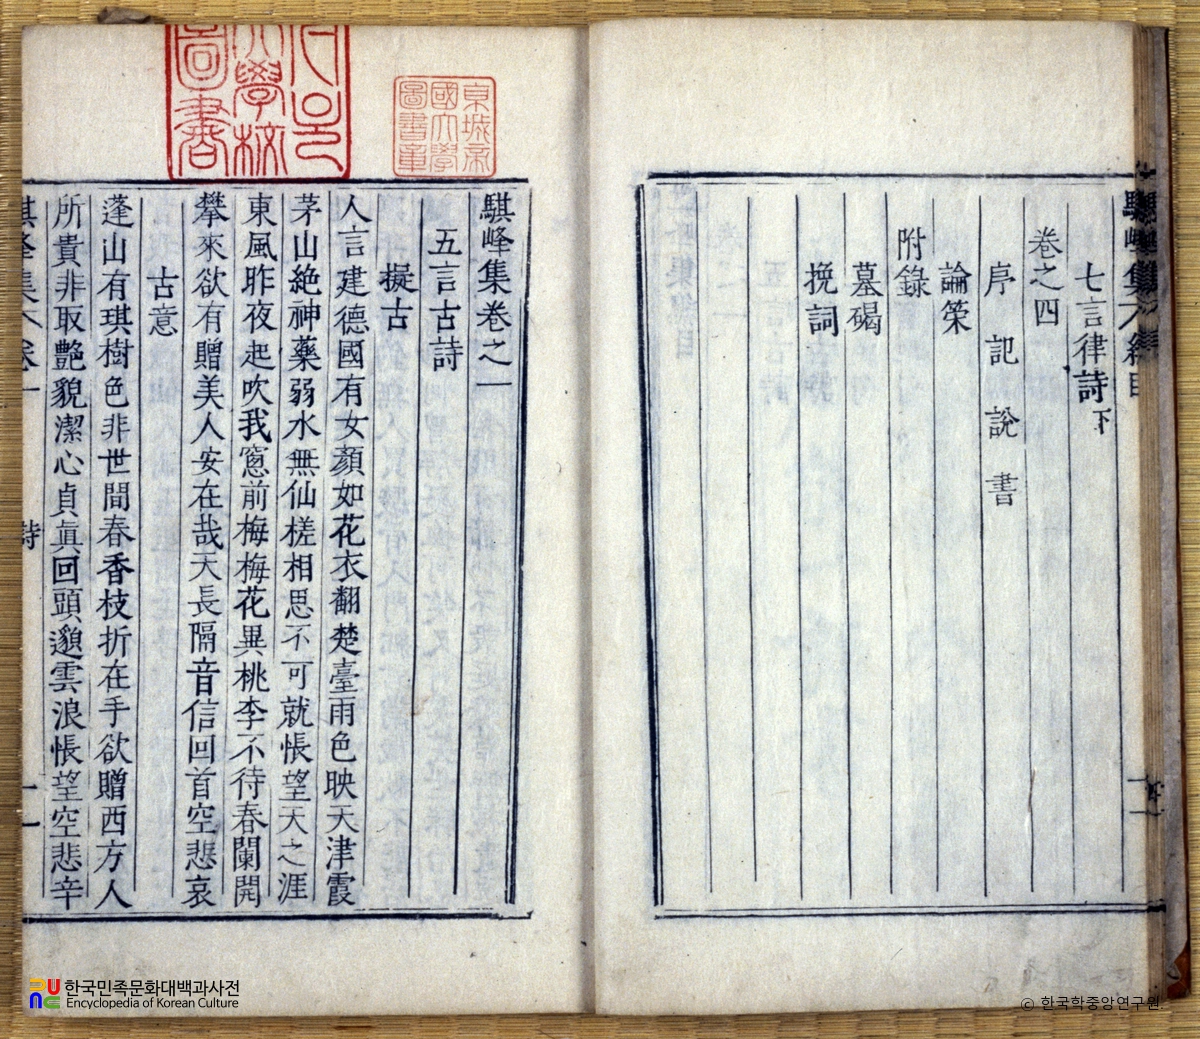 七言律詩下
卷之四
序 記 說 書
論策
附錄
墓碣
挽詞
騏峰集卷之一
五言古詩
擬古
人言建德國有女顏如花衣翻楚臺雨色映天津霞
茅山絶神藥弱水無仙槎相思不可就悵望天之涯
東風昨夜起吹我窓前梅梅花異桃李不待春闌開
攀來欲有贈美人安在哉天長隔音信回首空悲哀
古意
蓬山有琪樹色非世間春香枝折在手欲贈西方人
所貴非取艶貌潔心貞眞回頭邈雲浪悵望空悲辛
詩
大學校
圖書
京城帝
國大學
圖書章
한국민족문화대백과사전
Encyclopedia of Korean Culture
ⓒ 한국학중앙연구원